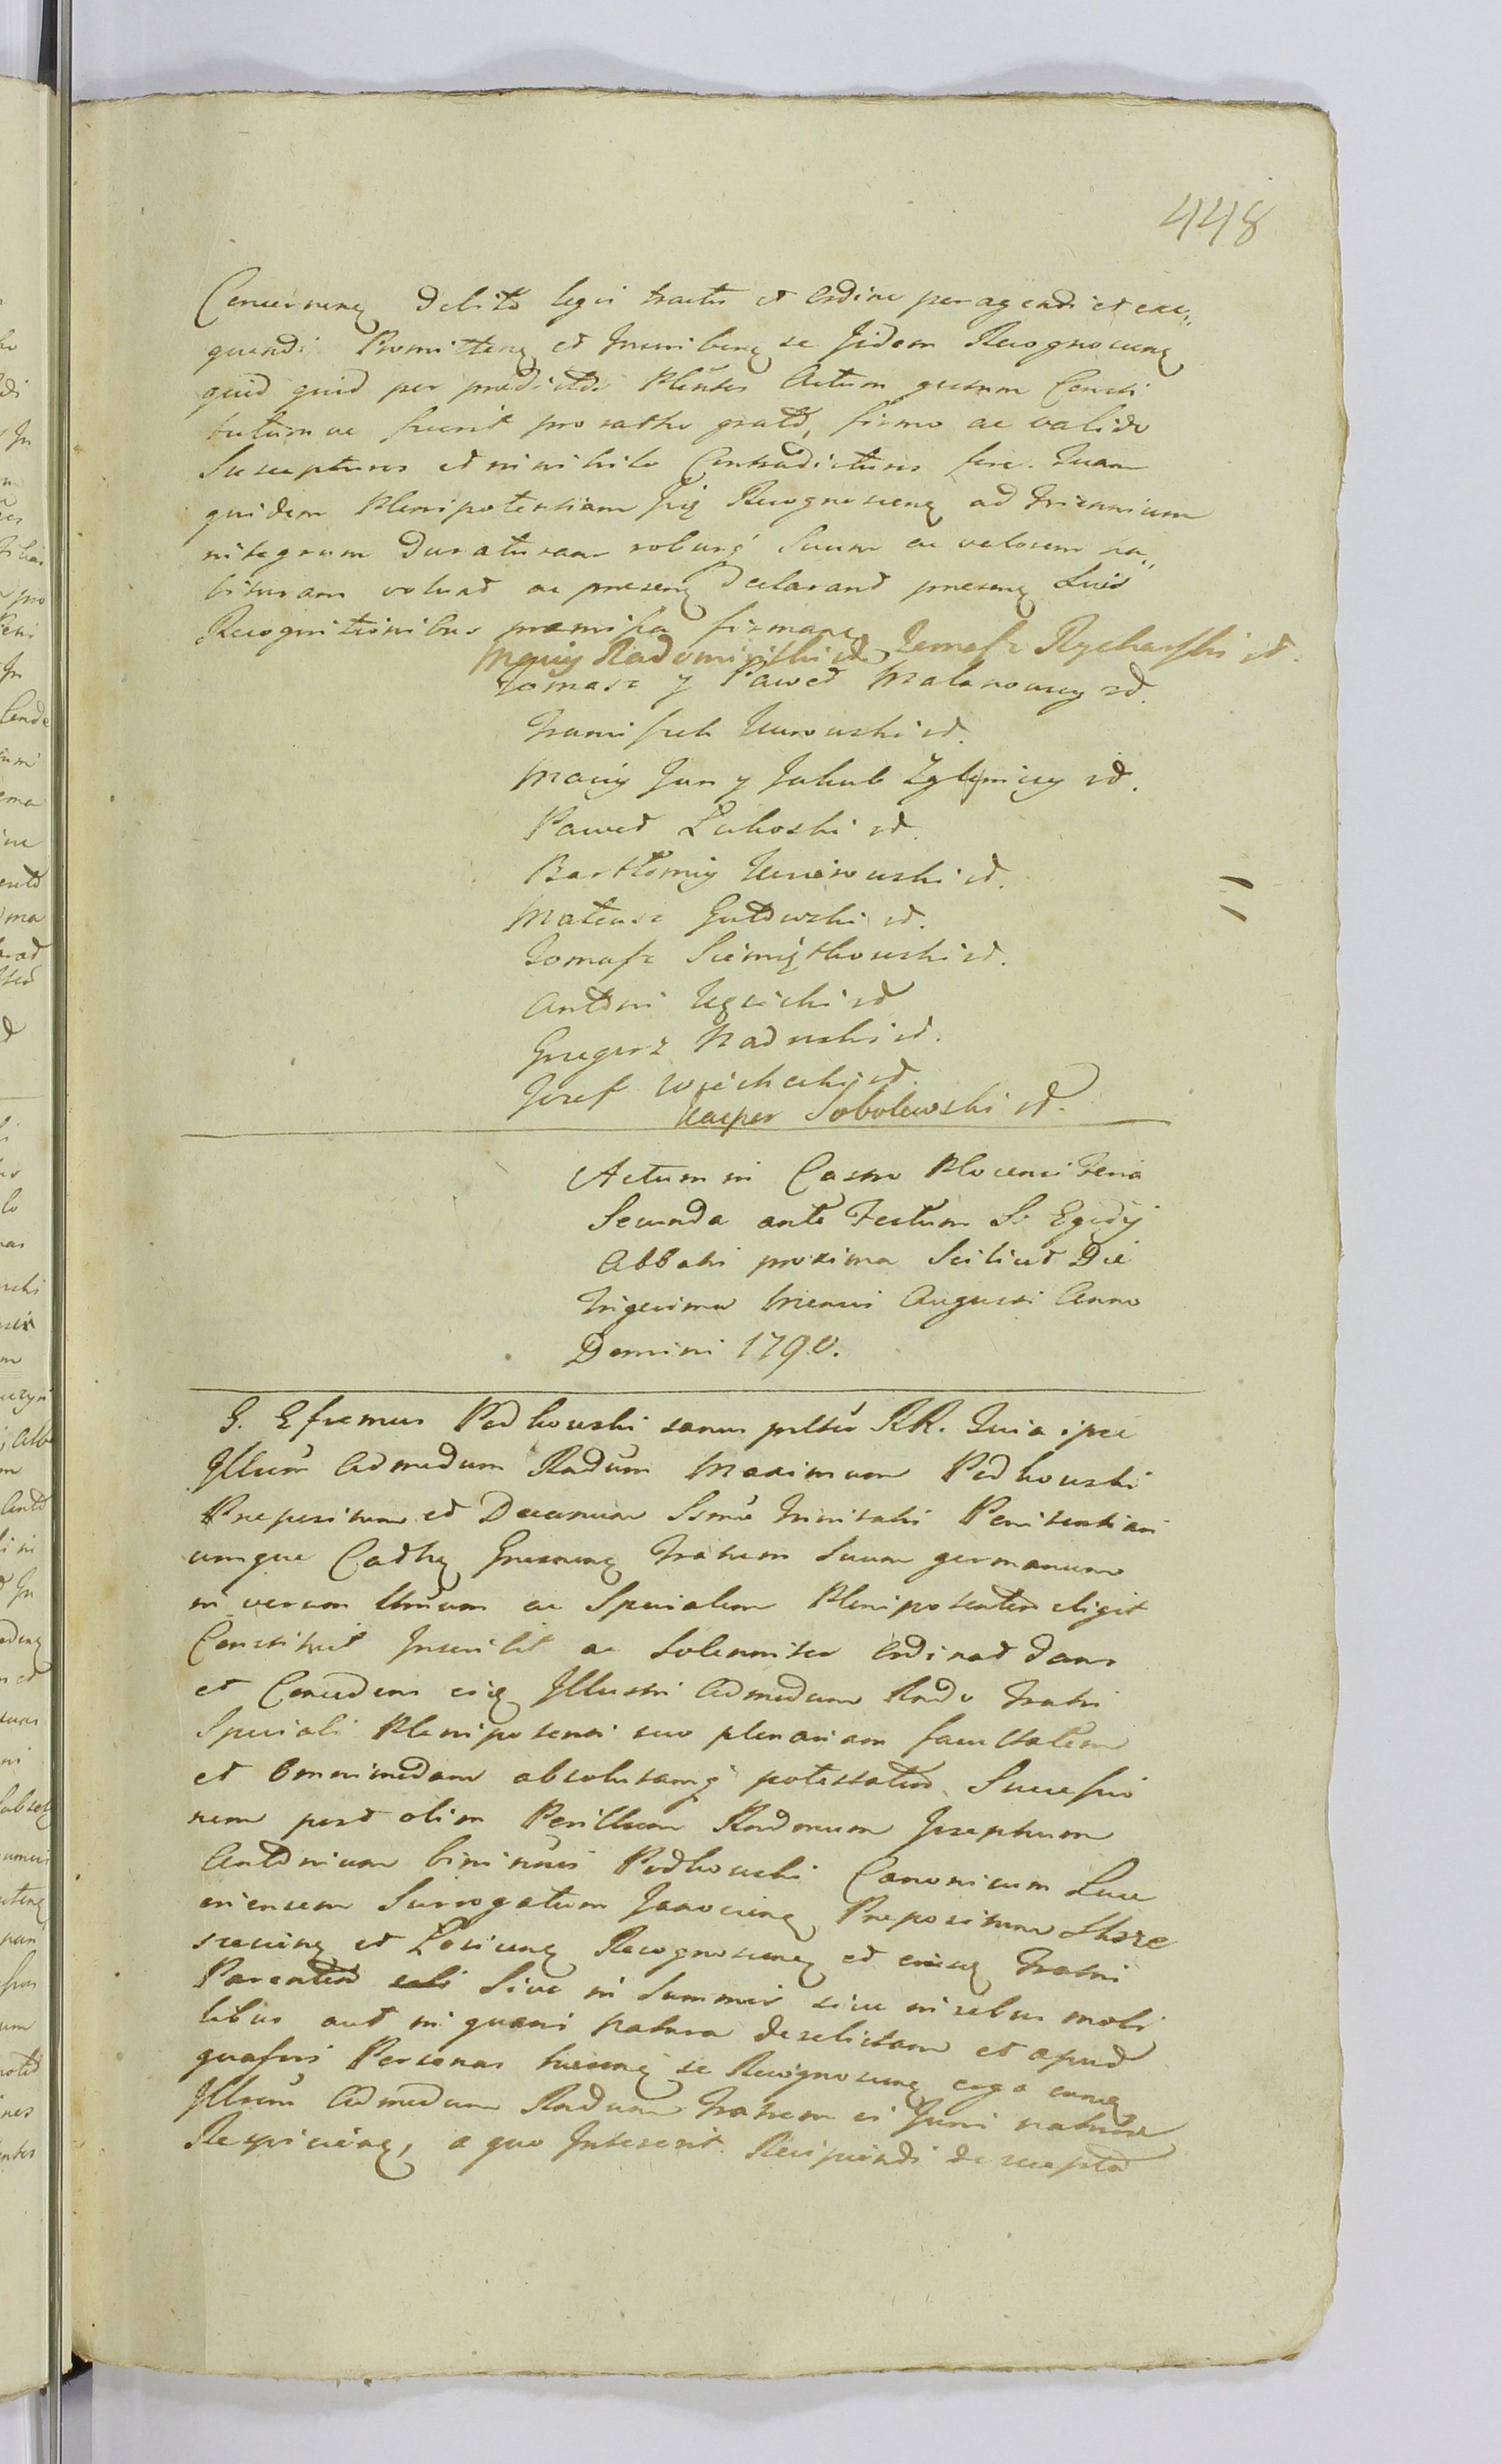 448
Concernenꝫ debito legis tractu et ordine peragendi et exe„
quendi. Promittenꝫ et Inscribenꝫ se Iidem Recognoscenꝫ
quid quid per praedictos Plentes Actum gestum Consti
tutum ve fuerit pro ratho grato, firmo ac valido
Suscepturos et in nihilo Contradicturos fore. Quam
quidem Plenipotentiam Iiꝫ Recognoscenꝫ ad triennium
integrum duraturam roburq́ Suum ac valorem ha„
bituram volunt ac praesenꝫ declarant praesenꝫ Suis
Recognitionibus praemissa firmanꝫ
Maciy Radomiński id. Tomasz Rycharski id.
Tomasz y Paweł Malanowscy id.
Franciszek Kurowski id.
Maciy Jan y Jakub Zglinicey id.
Paweł Łukoski id.
Bartłomiy id.
Mateusz Gutowski id.
Tomasz Siemiątkowski id.
Antoni id
Grzegorz id.
Jozef id.
Kacper Sobolewski id.
Actum in Castro Plocensi Feria
Secunda ante Festum S. Egidij
Abbatis proxima Scilicet Die
trigesima Mensis Augusti Anno
Domini 1790.
G. Efremus Podkowski sanus pltus RR. Quia ipse
Illum Admodum Rndum Maximum Podkowski
Praepositum et Decanum Ssmae Trinitatis Penitentiari
umque Cadhꝫ Gnesnenꝫ Fratrem Suum germanum
in verum Unicum ac Specialem Plenipotentem eligit
Constituit Inscribit ac Solenniter Ordinat dans
et Concedens eiꝫ Illustri Admodum Rndo Fratri
Speciali Plenipotenti suo plenariam facultatem
et Omnimodam absolutamq́ potestatem Successio
nem post olim Perillum Rndmum Josephum
Antonium binimus Podkowski Canonicum Luce
oriensem Surrogatum Janoviens Praepositum
et Recognoscenꝫ et eiusꝫ Fratri
Parentem Sive in Summis sive in rebus mobi
libus aut in quavis natura derelictam et apud
quasvis Personas se Recognoscenꝫ ergo eunꝫ
Illum Admodum Rndum Fratrem ei Iuri naturae
Respicienꝫ, a quo Intererit Recipiendi de receptis